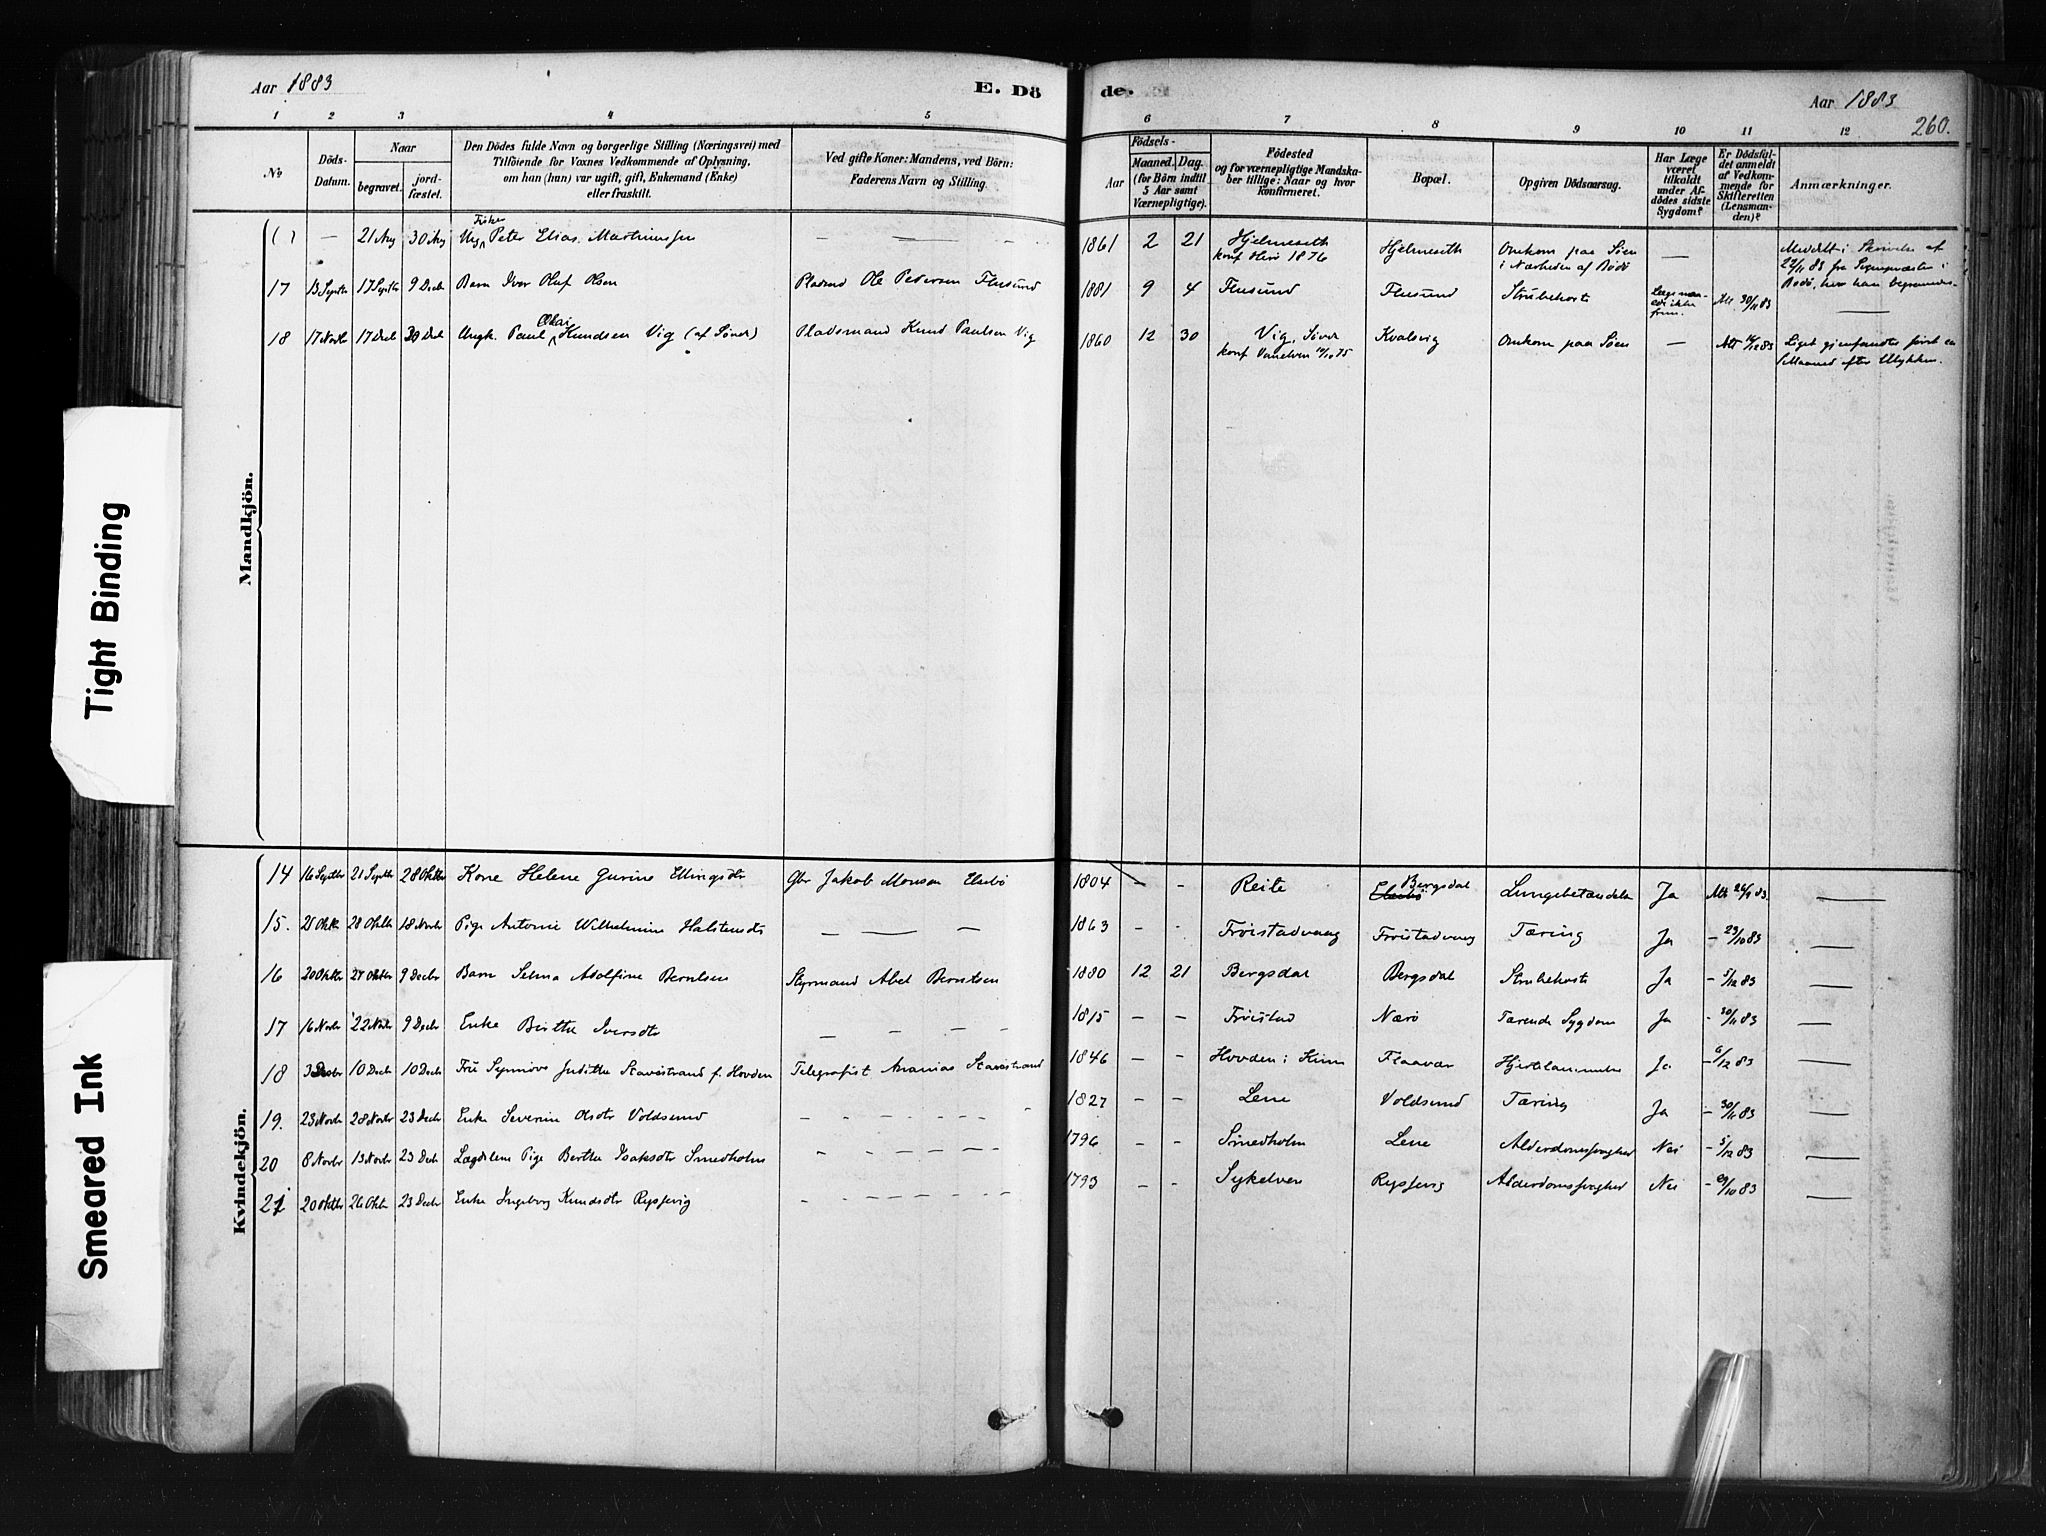 Aar 1883
E. Dö
de.
Aar 1883
260.
1 2 3 4 5 6 7 8 9 10 11 12
No
Döds-Datum.
Naar
begravet.
jord-fæstet.
Den Dödes fulde Navn og borgerlige Stilling (Næringsvei) med
Tilföiende for Voxnes Vedkommende af Oplysning,
om han (hun) var ugift, gift, Enkemand (Enke)
eller fraskilt.
Ved gifte Koner: Mandens, ved Börn:
Faderens Navn og Stilling.
Födsels-
Aar
Maaned. Dag.
(for Börn indtil
5 Aar samt
Værnepligtige).
Födested
og for værnepligtige Mandska-
ber tillige: Naar og hvor
konfirmeret.
Bopæl.
Opgiven Dödsaarsag.
Har Læge
været
tilkaldt
under Af-
dödes sidste
Sygdom?
Er Dödsfal-
det anmeldt
af Vedkom-
mende for
Skifteretten
(Lensman-
den)?
Anmærkninger.
Mandkjön.
( ) — 21 Aug 30 Aug Ung Fisker Peter Elias Martinussen — — — 1861 2 21 Hjelmeseth konf Herö 1876 Hjelmeseth Omkom paa Söen i Nærheden af Bodö — Meddelt i Skrivelse af 22/11 83 fra Sognepræsten i Bodö, hvor han begravedes
17 13 Septbr 17 Septbr 9 Decb Barn Iver Oluf Olsen Pladsmd Ole Pedersen Flusund 1881 9 4 Flusund Flusund Strubehoste Att 30/11 83 —
18 17 Novbr 17 Decb 30 Decb Ungk. Paul Olai Knudsen Vig (af Sövde) Pladsmand Knud Paulsen Vig 1860 12 30 Vig, Sövde konf Vanelven 75 Kvalsvig Omkom paa Söen — Att 83 Liget gjenfandtes först en Maaned efter Ulykken.
Kvindekjön.
14 16 Septbr 21 Septbr 28 Oktbr Kone Helene Gurine Ellingsdtr Gbr Jakob Monsen 1804 — - Reite Bergsdal Lungebetændelse Ja Att 83. —
15. 28 Oktbr 18 Novbr Pige Antonie Wilhelmine Halstensdtr — — — 1863 - - Fröistadvaag Fröistadvaag Tæring Ja - 23/10 83 —
16 20 Oktbr 27 Oktbr 9 Decbr Barn Selma Adolfine Berntsen Styrmand Abel Berntsen 1880 12 21 Bergsdal Bergsdal Strubehoste Ja - 5/12 83 —
17 16 Novbr 22 Novbr 9 Decbr Enke Birthe Iversdtr — — — — 1815 — — Fröistad Nærö Tærende Sygdom Ja - 30/11 83 —
18 3 Decbr 10 Decbr 10 Decbr Fru Synnöve Judithe Stavestrand f. Hovden Telegrafist Ananias Stavestrand 1846 — — Hovden i Kinn Flaavær Hjertelammelse Ja - 6/12 83 —
19. 23 Novbr 28 Novbr 23 Decbr Enke Severine Olsdtr Voldsund - - - - - - 1827 - - Lene Voldsund Tæring Ja - 30/11 83 —
20 8 Novbr 13 Novbr 23 Decb Lægdslem Pige Berthe Isaksdtr Smedholm - - - - - - 1796 - - Smedholm Lene Alderdomssvaghed Nei - 5/12 83 —
21 20 Oktbr 26 Oktbr 23 Decbr Enke Ingeborg Knudsdtr Rypsvig - - - - - - 1793 - - Sykelven Rypsvig Alderdomssvaghed Nei - 83 —
Tight Binding
Smeared Ink